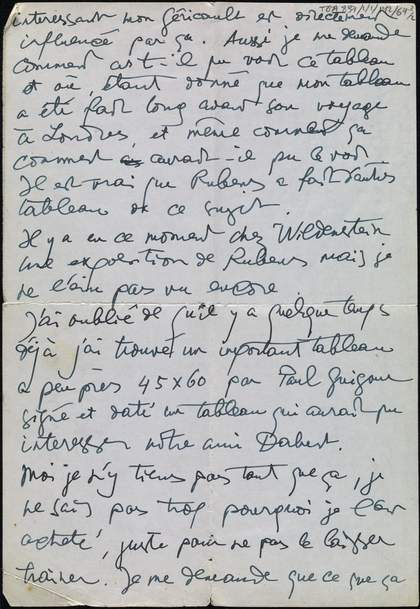 TGA 891/1/1/
interessant mon Géricault est directement
influencé par ça. Aussi je me demande
comment a-t-il pu voir ce tableau
et où, étant donné que mon tableau
a été fait long avant son voyage
à Londres, et même comment ça
comment aurait-il pu le voir
Il est vrai que Rubens a fait d'autres
tableau de ce sujet.
Il y a en ce moment chez Wildenstein
une exposition de Rubens mais je
ne l'ai pas vu encore.
J'ai oublié de qu'il y a quelque temps
déjà j'ai trouvé un important tableau
a peu près 45x60 par Paul Guigou
signé et daté un tableau qui aurait pu
interesser notre ami Dabert.
Moi je n'y tiens pas tant que ça, je
ne sais pas trop pourquoi je l'ai
acheté, juste pour ne pas le laisser
trainer. Je me demande que ce que ça